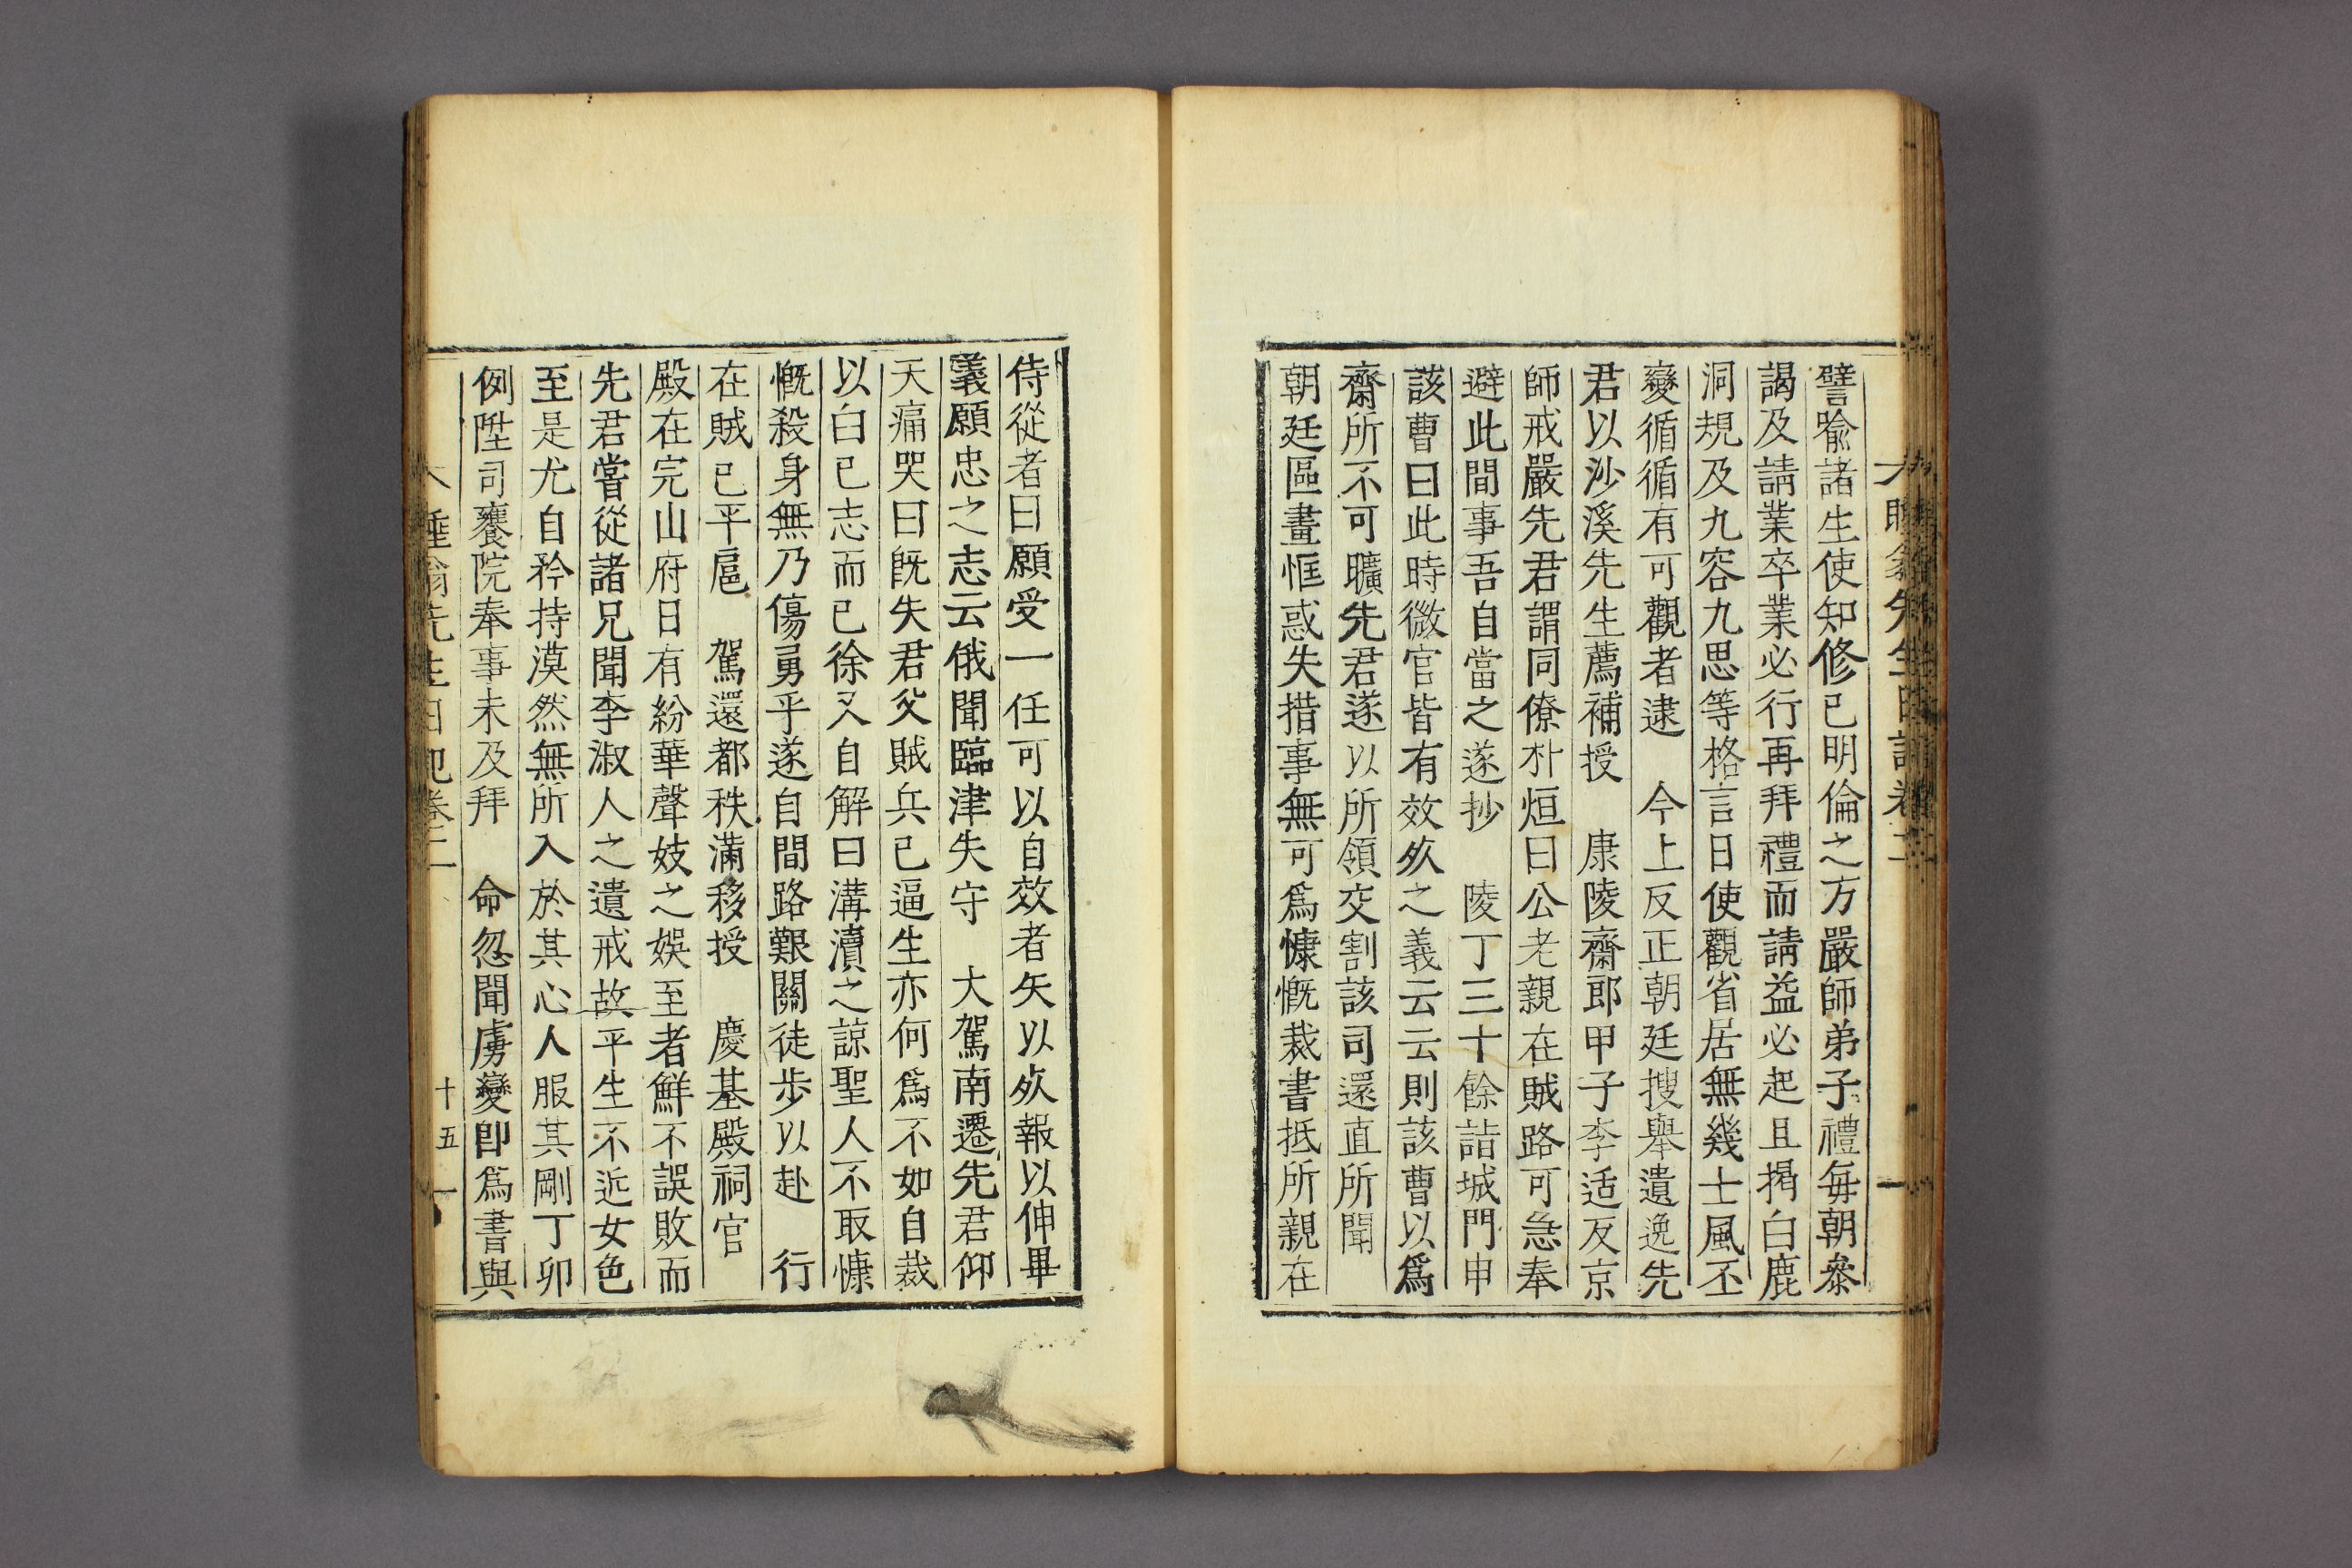 譬喩諸生使知修已明倫之方嚴師弟子禮每朝叅
謁及請業卒業必行再拜禮而請益必起且揭白鹿
洞規及九容九思等格言日使觀省居無幾士風丕
變循循有可觀者逮 今上反正朝廷搜擧遺逸先
君以沙溪先生薦補授 康陵齋郞甲子李适反京
師戒嚴先君謂同僚朴烜曰公老親在賊路可急奉
避此間事吾自當之遂抄 陵丁三十餘詣城門申
該曹曰此時微官皆有效死之義云云則該曹以爲
齋所不可曠先君遂以所領交割該司還直所聞
朝廷區畫恇惑失措事無可爲慷慨裁書抵所親在
侍從者曰願受一任可以自效者矢以死報以伸畢
義願忠之志云俄聞臨津失守 大駕南遷先君仰
天痛哭曰旣失君父賊兵已逼生亦何爲不如自裁
以白已志而已徐又自解曰溝瀆之諒聖人不取慷
慨殺身無乃傷勇乎遂自間路艱關徒步以赴 行
在賊已平扈 駕還都秩滿移授 慶基殿祠官
殿在完山府日有紛華聲妓之娛至者鮮不誤敗而
先君嘗從諸兄聞李淑人之遺戒故平生不近女色
至是尤自矜持漠然無所入於其心人服其剛丁卯
例陞司饔院奉事未及拜 命忽聞虜變卽爲書與
睡翁先生日記卷二 十五